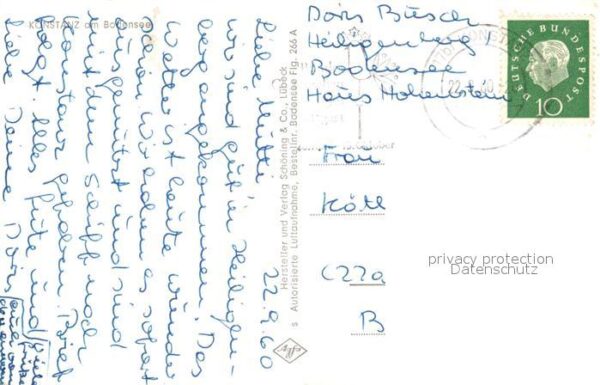 KONSTANZ am Bodensee
22.9.60
Liebe Mutti
wir sind gut in Heiligen-
berg angekommen. Das
Wetter ist heute wieder
schön wir haben es sofort
ausgenützt und sind
mit dem Schiff nach
Konstanz gefahren. Brief
folgt. Alles Gute und
liebe Deine Doris
Viele
Grüße
auch von
Hersteller und Verlag Schöning & Co., Lübeck
s Autorisierte Luftaufnahme, Bestellnr. Bodensee Hg. 266 A
Agfa
Doris Büsch
Heiligenberg /
Bodensee
Haus Hohenstein
DEUTSCHE BUNDESPOST
10
Frau
Költ
C22a
B
privacy protection
Datenschutz